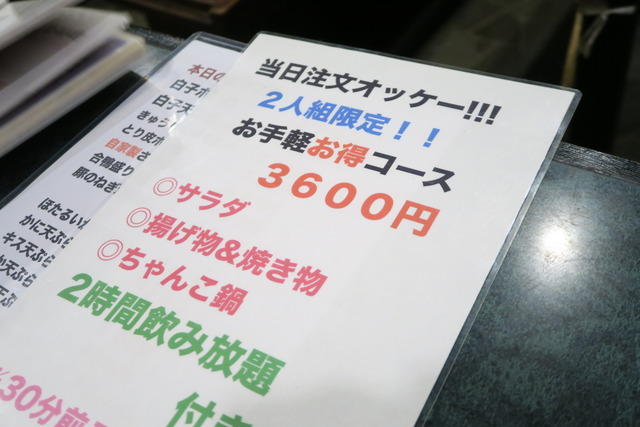 当日注文オッケー!!!
2人組限定!!
お手軽お得コース
3600円
◎サラダ
◎揚げ物&焼き物
◎ちゃんこ鍋
2時間飲み放題
付き
30分前
本日の
白子ポ
白子天
きゅう
とり皮ポ
自家製さ
合鴨盛り
豚のねぎ
ほたるいか
かに天ぷら
キス天ぷら
か天ぷら
天ぷら